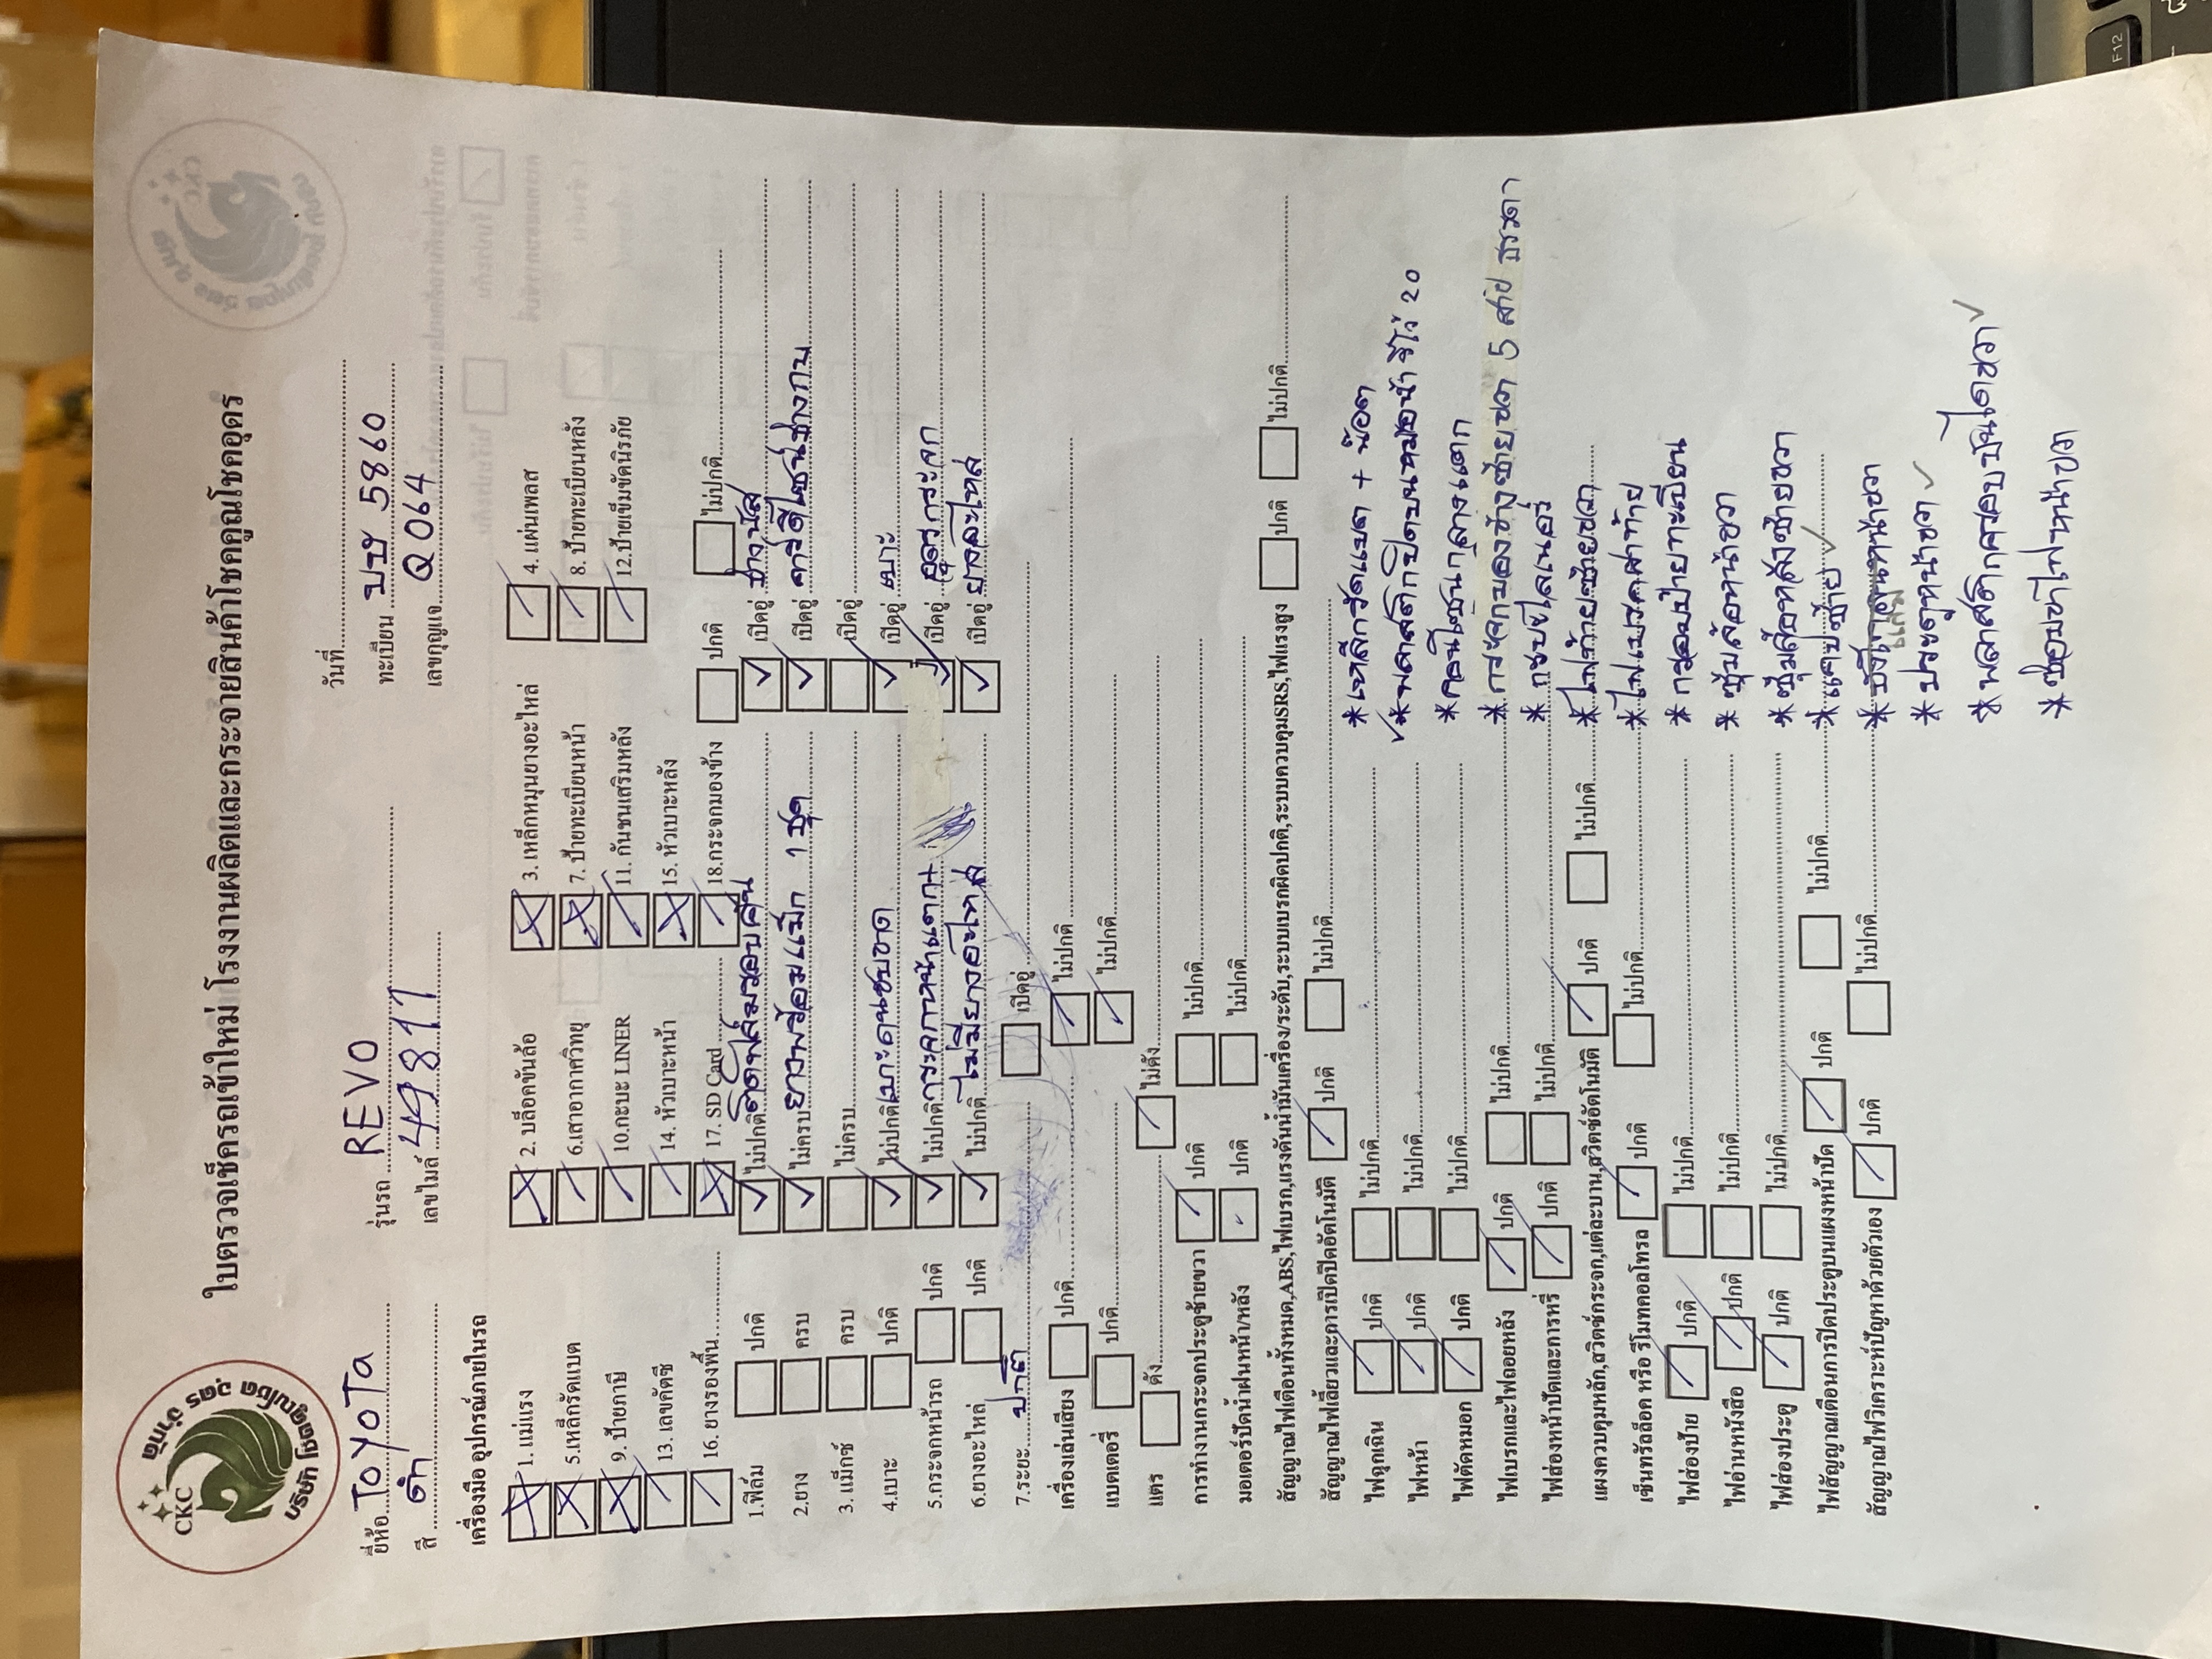 CKC
บริษัท โชคคูณโชค อุดร จำกัด
ใบตรวจเช็ครถเข้าใหม่ โรงงานผลิตและกระจายสินค้าโชคคูณโชคอุดร
วันที่
ยี่ห้อ TOYOTA รุ่นรถ REVO ทะเบียน 5860
สี ดำ เลขไมล์ 49817 เลขกุญแจ Q064
เครื่องมือ อุปกรณ์ภายในรถ
1. แม่แรง 2. บล็อคขันล้อ 3. เหล็กหมุนยางอะไหล่ 4. แผ่นเพลส
5.เหล็กรัดแบต 6.เสาอากาศวิทยุ 7. ป้ายทะเบียนหน้า 8. ป้ายทะเบียนหลัง
9. ป้ายภาษี 10.กะบะ LINER 11. กันชนเสริมหลัง 12.ป้ายเข็มขัดนิรภัย
13. เลขคัตซี 14. หัวเบาะหน้า 15. หัวเบาะหลัง
16. ยางรองพื้น 17. SD Card 18.กระจกมองข้าง ปกติ ไม่ปกติ
1.ฟิล์ม ปกติ ไม่ปกติ ติดฟิล์มรอบคัน เปิดอู่ ช่างบัส
2.ยาง ครบ ไม่ครบ ยางพร้อมแม็ก 1 ชุด เปิดอู่
3. แม็กซ์ ครบ ไม่ครบ เปิดอู่
4.เบาะ ปกติ ไม่ปกติ เบาะคนขับขาด เปิดอู่ เบาะ
5.กระจกหน้ารถ ปกติ ไม่ปกติ กระจกหน้าแตก+ เปิดอู่ อุดรกระจก
6.ยางอะไหล่ ปกติ ไม่ปกติ ไม่มียางอะไหล่ เปิดอู่ ยางอะไหล่
7.ระยะ ปกติ เปิดอู่
เครื่องเล่นเสียง ปกติ ไม่ปกติ
แบตเตอรี่ ปกติ ไม่ปกติ
แตร ดัง ไม่ดัง
การทำงานกระจกประตูซ้ายขวา ปกติ ไม่ปกติ
มอเตอร์ปัดน้ำฝนหน้า/หลัง ปกติ ไม่ปกติ
สัญญาณไฟเตือนทั้งหมด,ABS,ไฟเบรก,แรงดันน้ำมันเครื่อง/ระดับ,ระบบเบรกผิดปกติ,ระบบควบคุมSRS,ไฟแรงสูง ปกติ ไม่ปกติ
สัญญาณไฟเลี้ยวและการเปิดปิดอัตโนมัติ ปกติ ไม่ปกติ
ไฟฉุกเฉิน ปกติ ไม่ปกติ * เหล็กรัดแบต + น๊อต
ไฟหน้า ปกติ ไม่ปกติ * พลาสติกปิดบนหม้อน้ำ รีโว่ 20
ไฟตัดหมอก ปกติ ไม่ปกติ * คอนโซนกลางแตก
ไฟเบรกและไฟถอยหลัง ปกติ ไม่ปกติ * กระจกมองข้างซ้ายขวา 5 สาย ธรรมดา
ไฟส่องหน้าปัดและการหรี่ ปกติ ไม่ปกติ * กะบะไลเนอร์
แผงควบคุมหลัก,สวิตช์กระจก,แต่ละบาน,สวิตช์อัตโนมัติ ปกติ ไม่ปกติ * ไฟท้ายซ้ายขวา
เซ็นทรัลล็อค หรือ รีโมทคอลโทรล ปกติ ไม่ปกติ * ไฟเบรคฝาท้าย
ไฟส่องป้าย ปกติ ไม่ปกติ * กรอบป้ายทะเบียน
ไฟอ่านหนังสือ ปกติ ไม่ปกติ * ซุ้มล้อหน้าขวา
ไฟส่องประตู ปกติ ไม่ปกติ * ซุ้มล้อหลังซ้ายขวา
ไฟสัญญาณเตือนการปิดประตูบนแผงหน้าปัด ปกติ ไม่ปกติ * แคปซ้าย
สัญญาณไฟวิเคราะห์ปัญหาด้วยตัวเอง ปกติ ไม่ปกติ
* ประตูหน้าขวา
* พลาสติกครอบบันไดขวา
F12